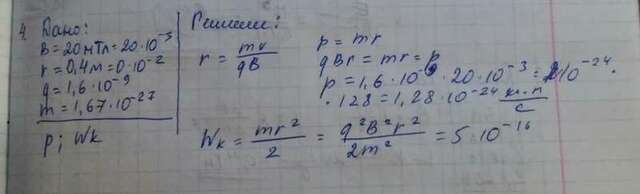 4. Дано:
B = 20мТл = 20·10⁻³
r = 0,4м = 0·10⁻²
q = 1,6·10⁻⁹
m = 1,67·10⁻²⁷
p; Wk
Решение:
r = mv/qB
p = mr
qBr = mr = p
p = 1,6·10⁻⁹·20·10⁻³ = 10⁻²⁴·
·128 = 1,28·10⁻²⁴ кг·м/с
Wk = mr²/2 = q²B²r²/2m² = 5·10⁻¹⁶